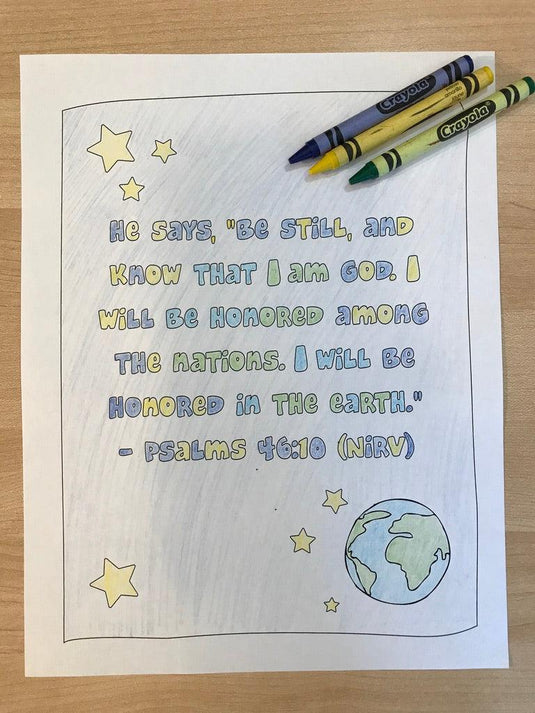 Crayola
amarillo
Crayola
He says, "Be still, and
know that I am God. I
will be honored among
the nations. I will be
honored in the earth."
- Psalms 46:10 (NiRV)